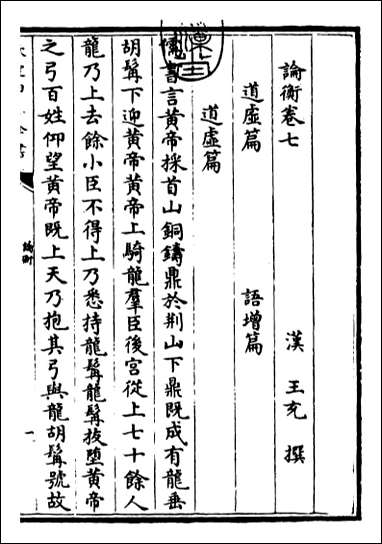 論衡卷七
漢 王充 撰
道虛篇 語增篇
道虛篇
儒書言黃帝採首山銅鑄鼎於荆山下鼎既成有龍垂
胡髯下迎黃帝黃帝上騎龍羣臣後宮從上七十餘人
龍乃上去餘小臣不得上乃悉持龍髯龍髯拔墮黃帝
之弓百姓仰望黃帝既上天乃抱其弓與龍胡髯號故
論衡
一